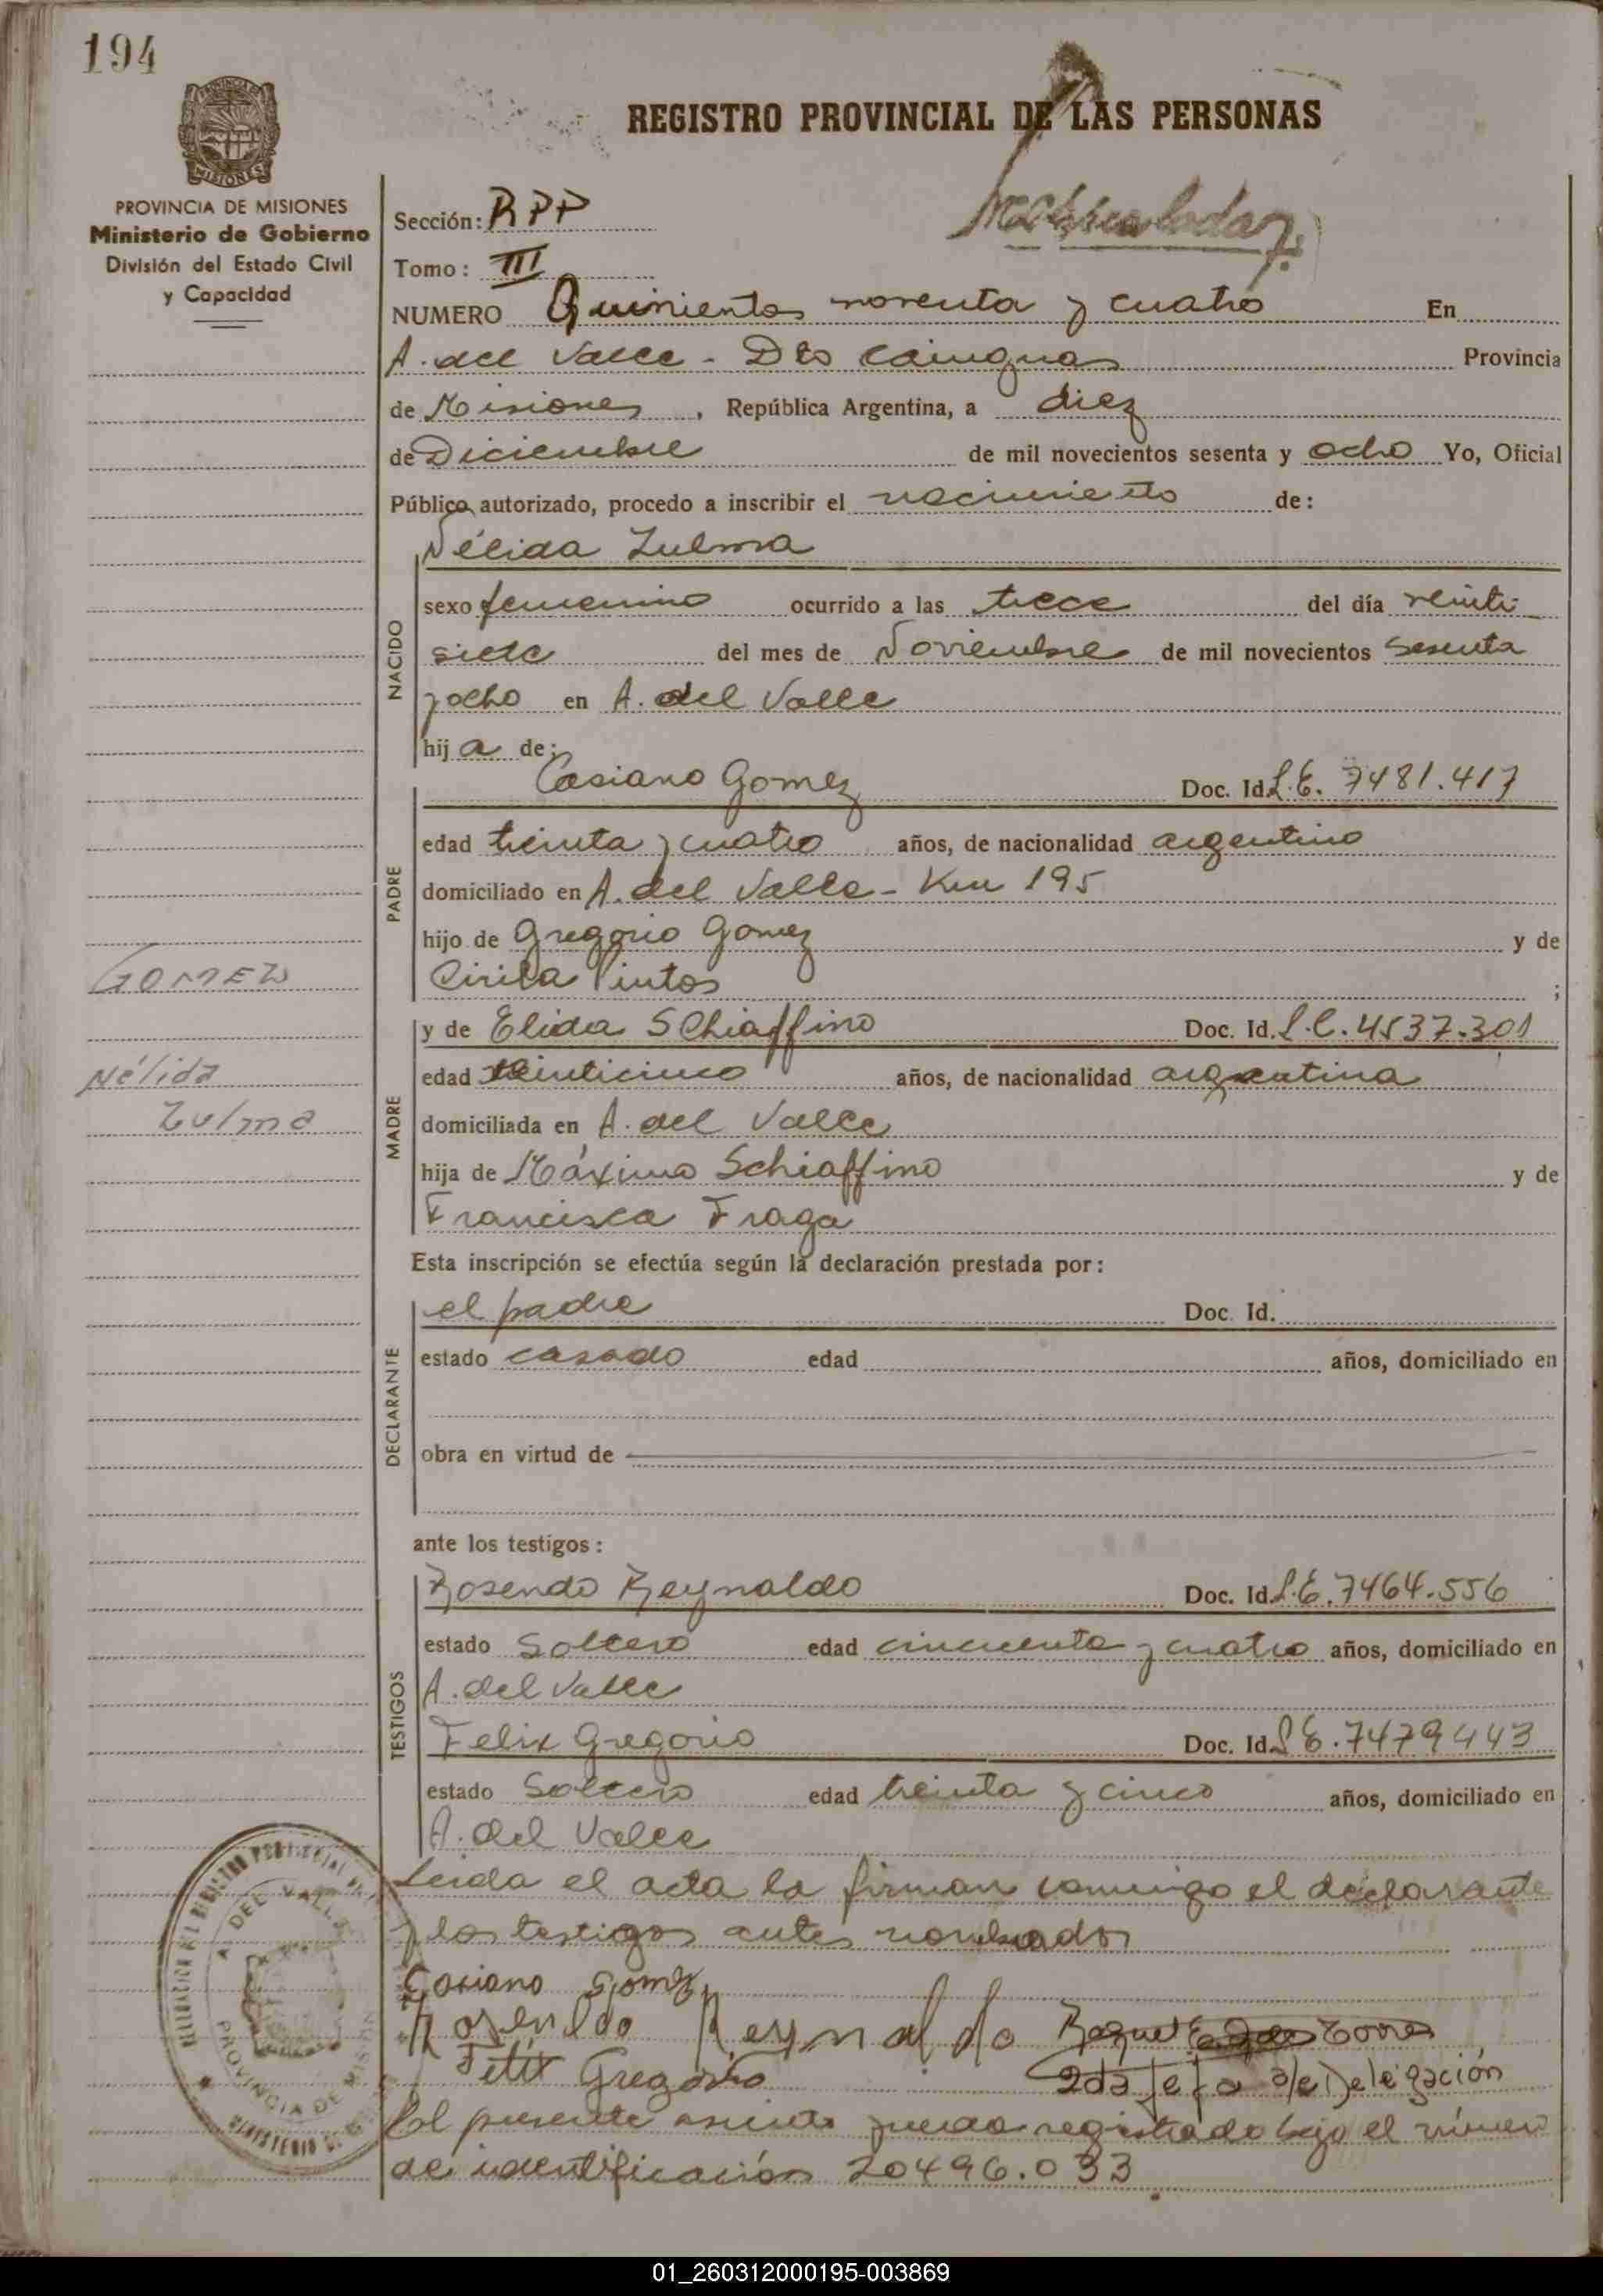 194
REGISTRO PROVINCIAL DE LAS PERSONAS
PROVINCIA DE MISIONES
Ministerio de Gobierno
División del Estado Civil
y Capacidad
Sección: RPP
Tomo: III
NUMERO Quinientos noventa y cuatro En
A. del Valle - Dto Cainguas Provincia
de Misiones, República Argentina, a diez
de Diciembre de mil novecientos sesenta y ocho Yo, Oficial
Público autorizado, procedo a inscribir el nacimiento de:
Nélida Zulma
NACIDO
sexo femenino ocurrido a las trece del día veinti
siete del mes de Noviembre de mil novecientos sesenta
y ocho en A. del Valle
hija de:
Casiano Gomez Doc. Id. L.E. 7481.417
PADRE
edad treinta y cuatro años, de nacionalidad argentino
domiciliado en A. del Valle - Km 195
hijo de Gregorio Gomez y de
Cirila Pintos ;
GOMEZ
Nélida
Zulma
MADRE
y de Elida SChiaffino Doc. Id. L.C. 4537.301
edad veinticinco años, de nacionalidad argentina
domiciliada en A. del Valle
hija de Máximo Schiaffino y de
Francisca Fraga
Esta inscripción se efectúa según la declaración prestada por:
DECLARANTE
el padre Doc. Id.
estado casado edad años, domiciliado en
obra en virtud de
ante los testigos:
TESTIGOS
Rosendo Reynaldo Doc. Id. L.E. 7464.556
estado Soltero edad cincuenta y cuatro años, domiciliado en
A. del Valle
Felix Gregorio Doc. Id. L.E. 7479443
estado Soltero edad treinta y cinco años, domiciliado en
A. del Valle
Leida el acta la firman conmigo el declarante
y los testigos antes nombrados
Casiano Gomez
Rosendo Reynaldo Raquel Torres
Felix Gregorio
Jefa Delegación
El presente asiento queda registrado bajo el número
de identificación 20496.033
A DEL VALLE
PROVINCIA DE MISIONES
01_260312000195-003869